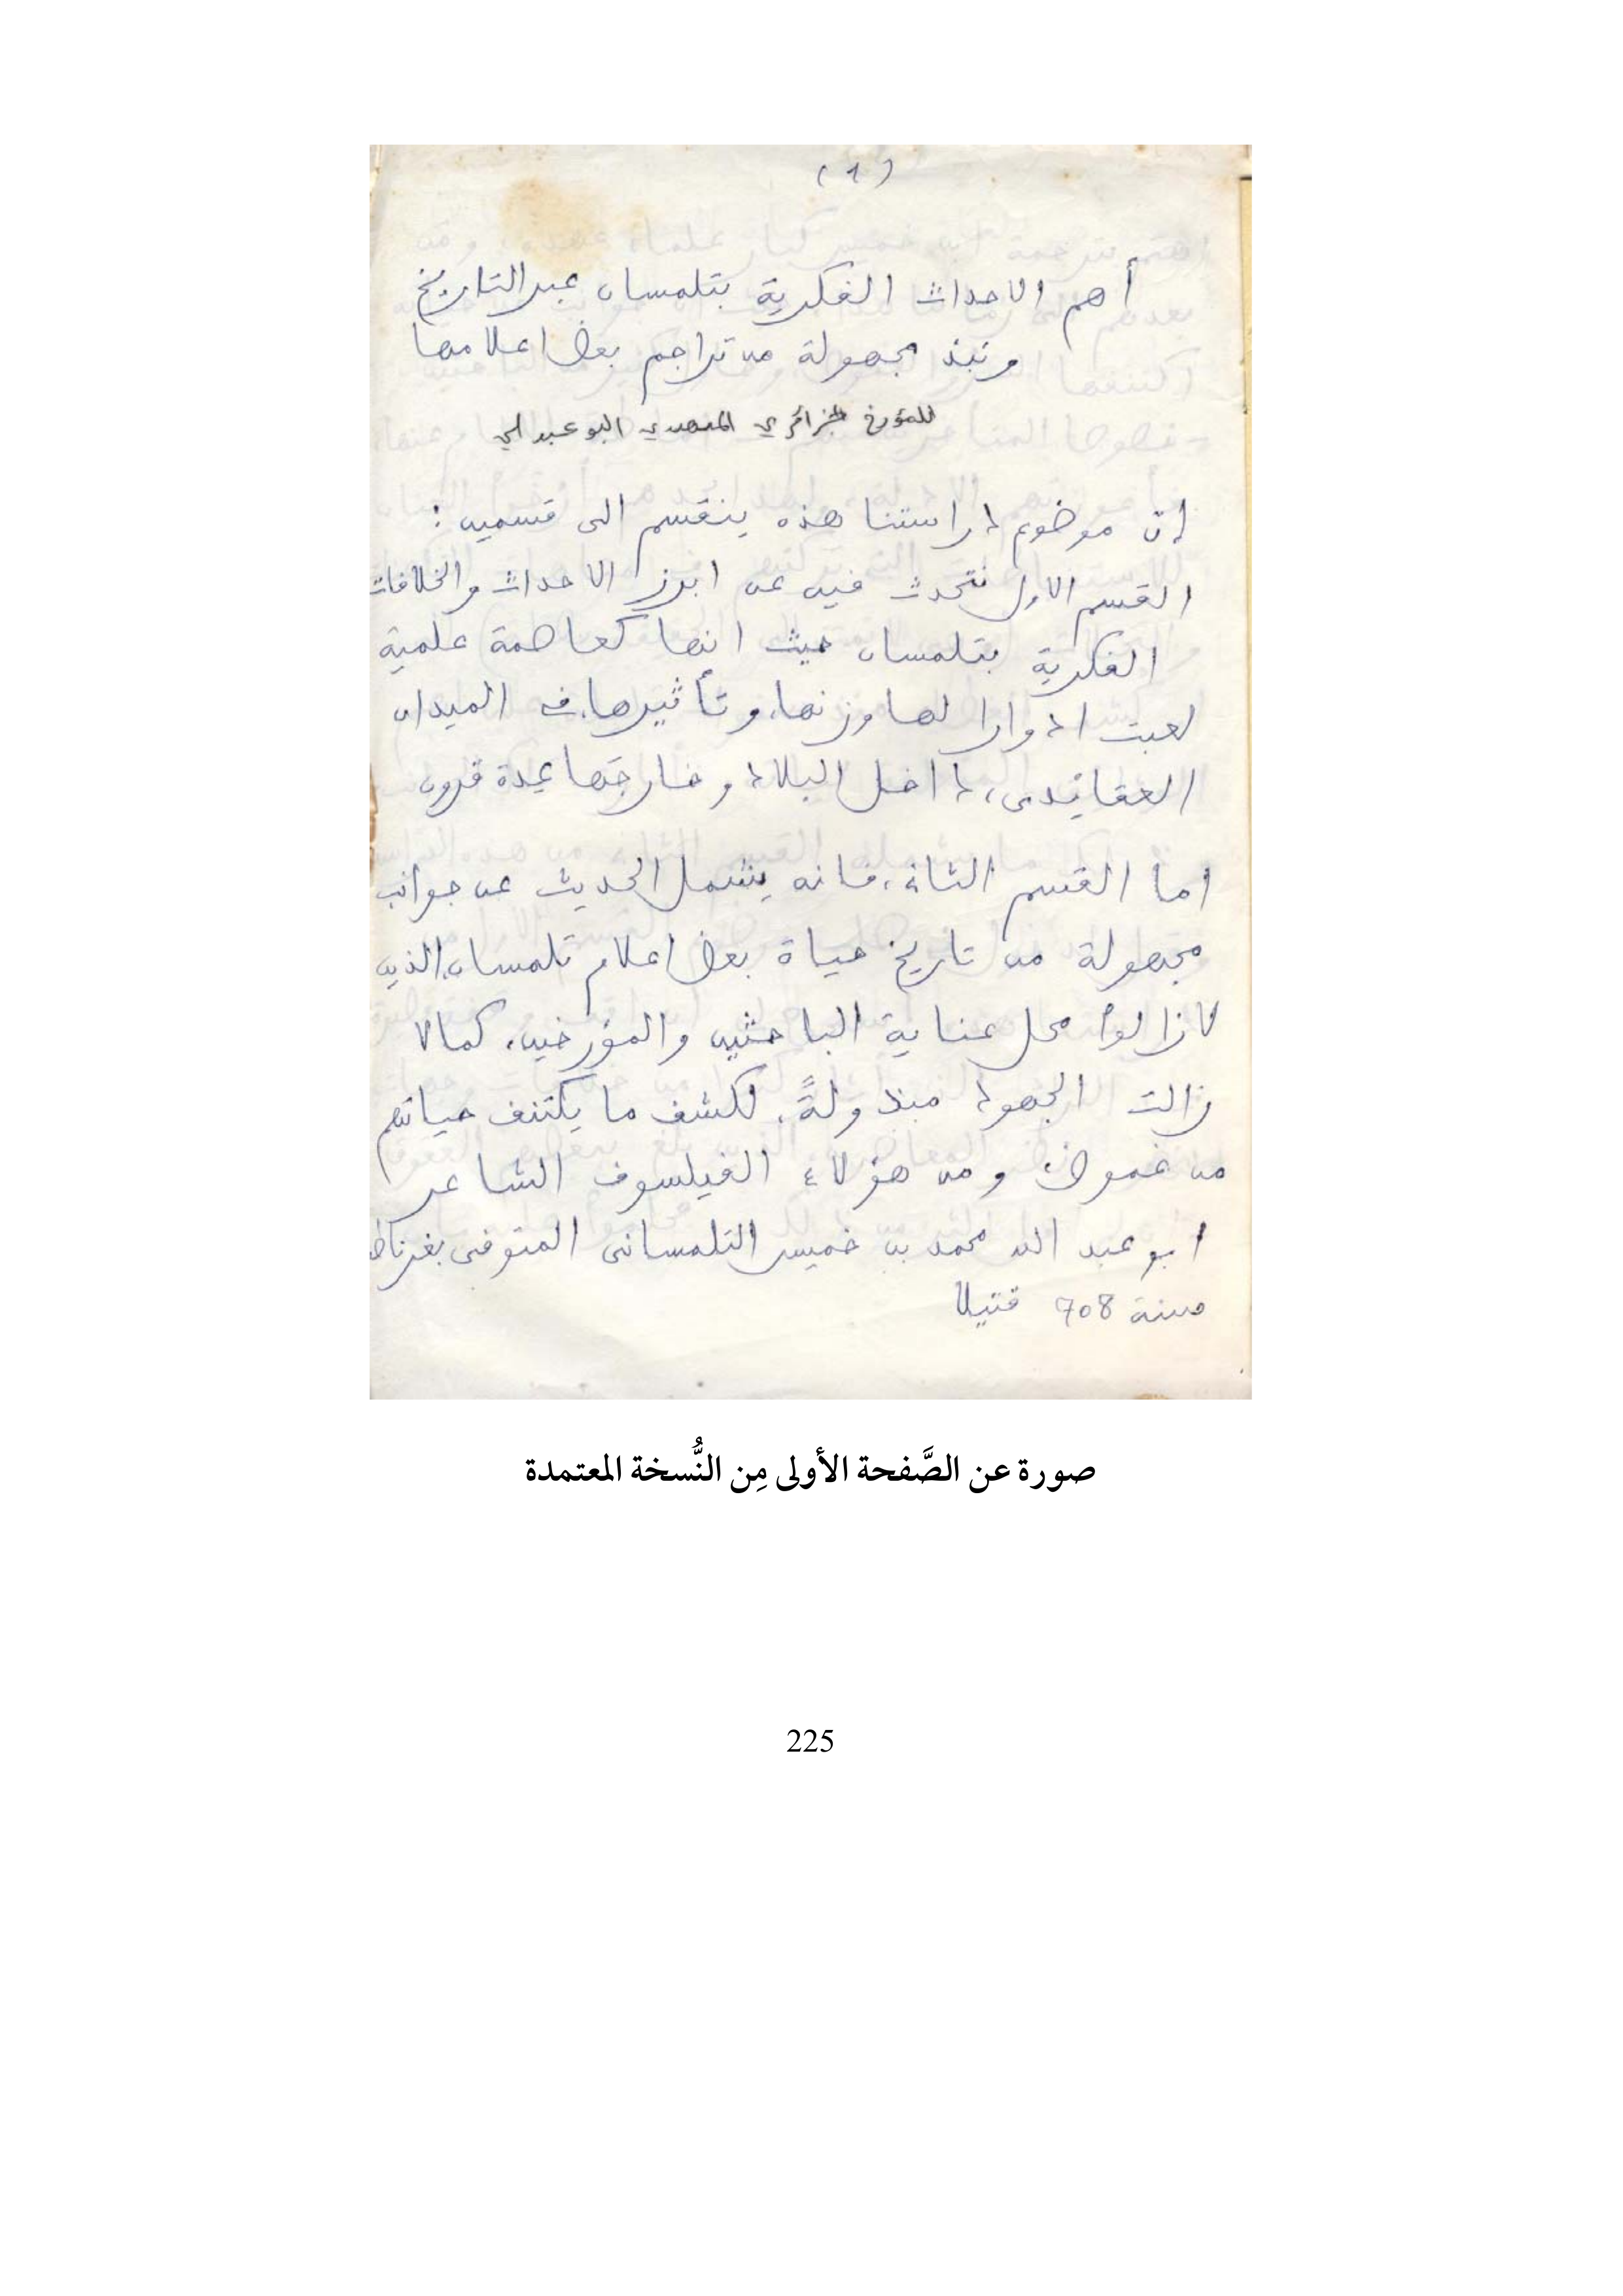 (1)
أهم الاحداث الفكرية بتلمسان عبر التاريخ
ونبذ مجهولة من تراجم بعض اعلامها
للمؤرخ الجزائري المهدي البوعبدلي
إن موضوع دراستنا هذه ينقسم الى قسمين :
القسم الاول نتحدث فيه عن ابرز الاحداث والخلافات
الفكرية بتلمسان حيث انها كعاصمة علمية
لعبت ادوارا لها وزنها، وتأثيرها، في الميدان
العقائدى، داخل البلاد وخارجها عدة قرون
اما القسم الثاني، فانه يشمل الحديث عن جوانب
مجهولة من تاريخ حياة بعض اعلام تلمسان، الذين
لازالوا محل عناية الباحثين والمؤرخين، كما لا
زالت الجهود مبذولةً، لكشف ما يكتنف حياتهم
من غموض ومن هؤلاء الفيلسوف الشاعر
ابو عبد الله محمد بن خميس التلمسانى المتوفى بغرناطة
سنة 708 قتيلا
صورة عن الصَّفحة الأولى مِن النُّسخة المعتمدة
225